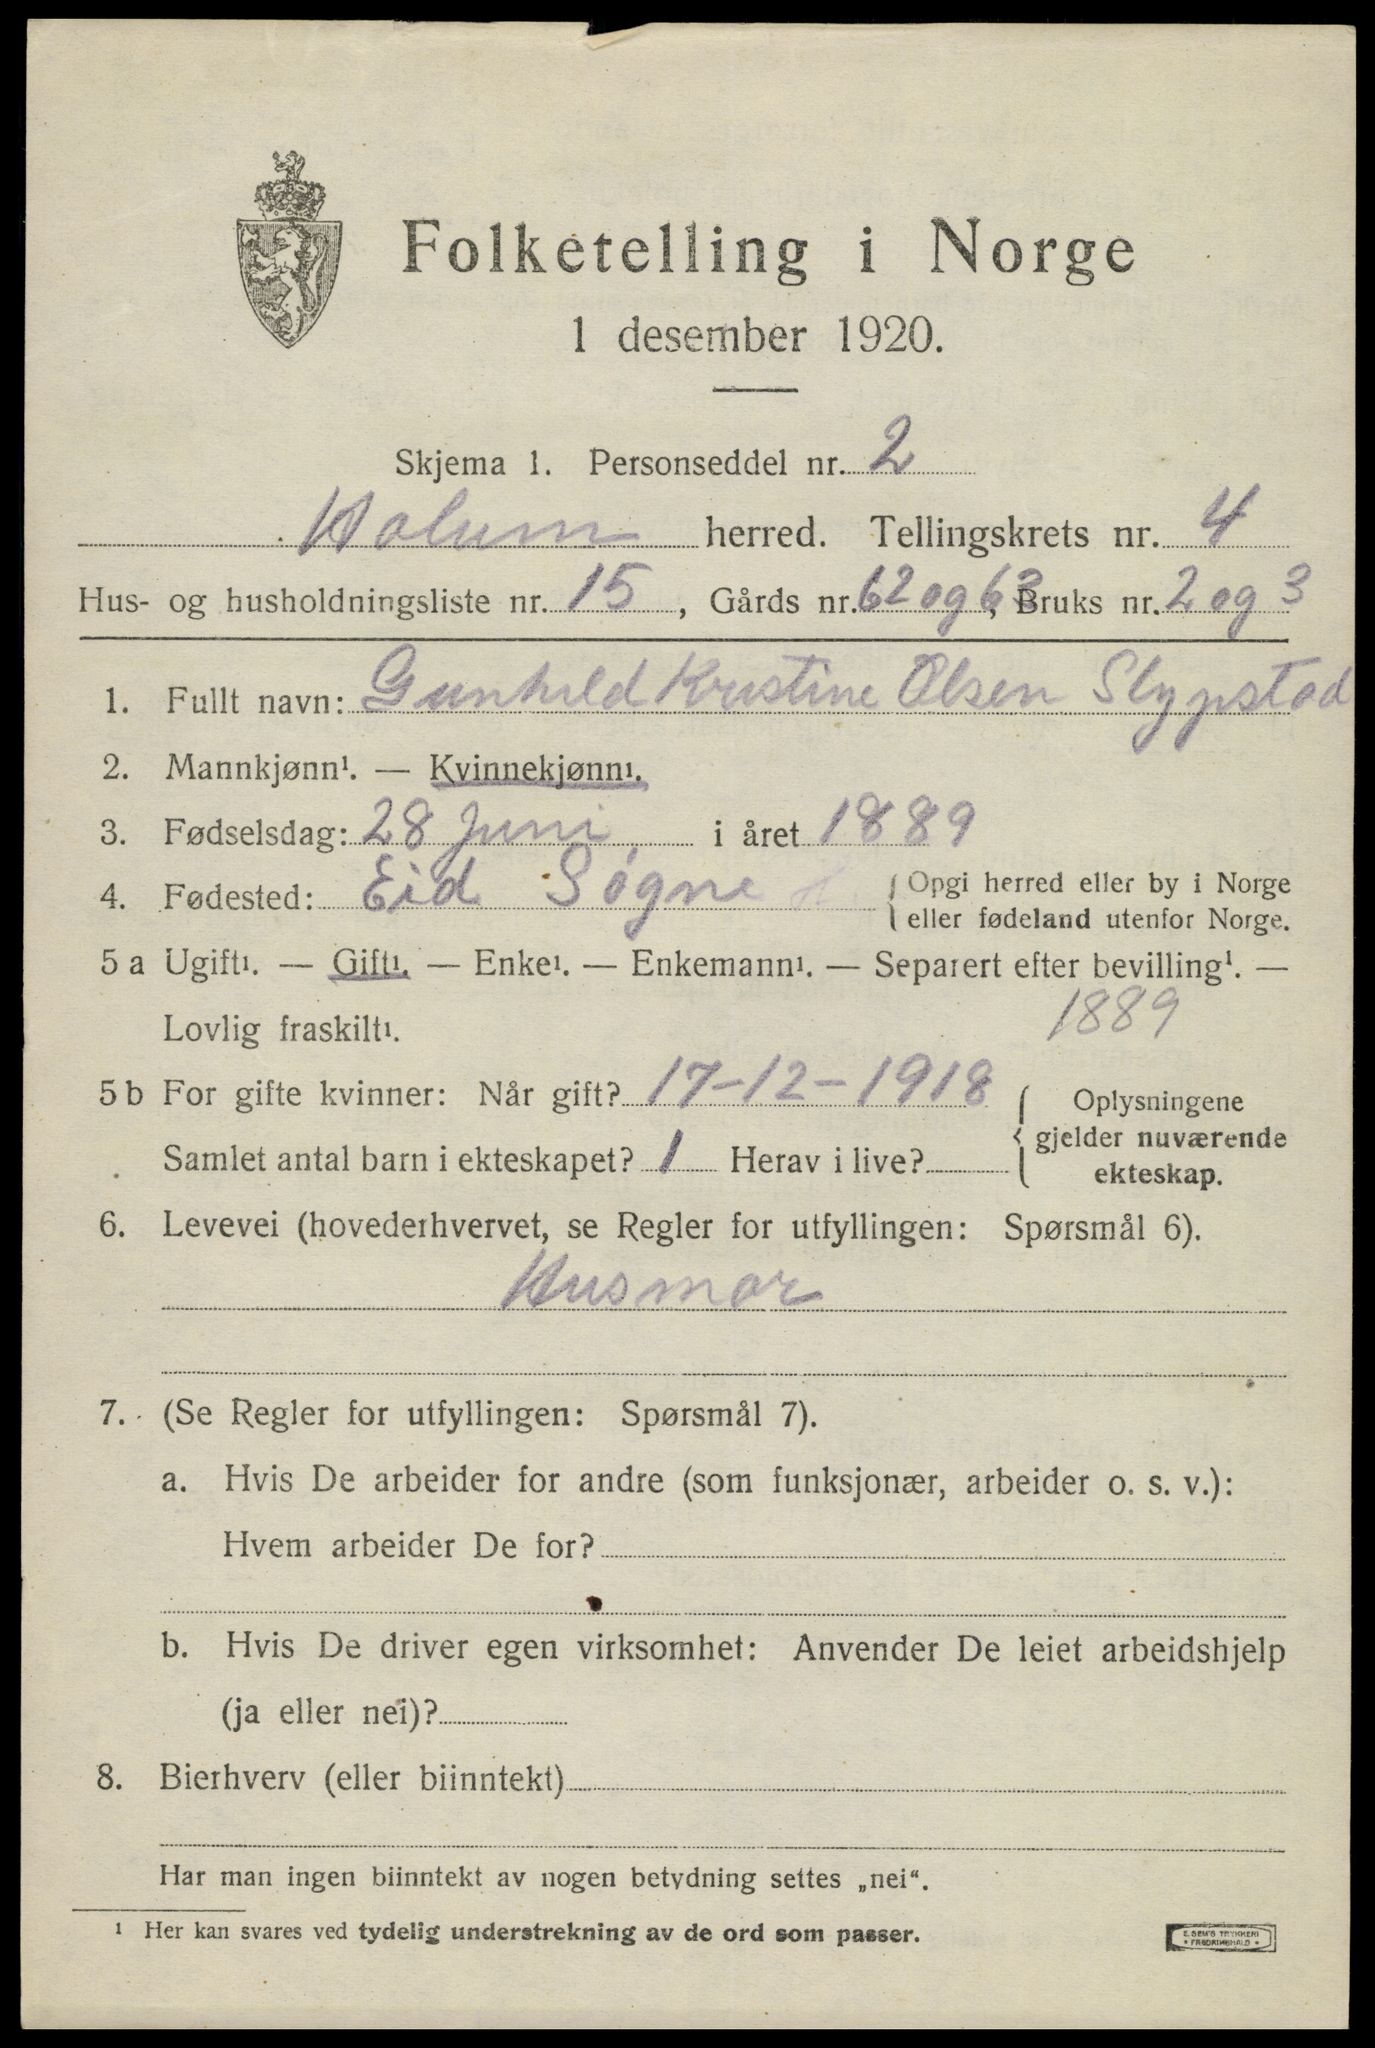 Folketelling i Norge
1 desember 1920.
Skjema 1. Personseddel nr. 2
Holum herred. Tellingskrets nr. 4
Hus- og husholdningsliste nr. 15, Gårds nr. 62 og 63, Bruks nr. 2 og 3
1. Fullt navn: Gunhild Kristine Olsen Slypstad
2. Mannkjønn¹. — Kvinnekjønn¹.
3. Fødselsdag: 28 Juni i året 1889
4. Fødested: Eid Søgne { Opgi herred eller by i Norge
eller fødeland utenfor Norge.
5 a Ugift¹. — Gift¹. — Enke¹. — Enkemann¹. — Separert efter bevilling¹. —
Lovlig fraskilt¹. 1889
5 b For gifte kvinner: Når gift? 17-12-1918 { Oplysningene
gjelder nuværende
Samlet antal barn i ekteskapet? 1 Herav i live?
ekteskap.
6. Levevei (hovederhvervet, se Regler for utfyllingen: Spørsmål 6).
Husmor
7. (Se Regler for utfyllingen: Spørsmål 7).
a. Hvis De arbeider for andre (som funksjonær, arbeider o. s. v.):
Hvem arbeider De for?
b. Hvis De driver egen virksomhet: Anvender De leiet arbeidshjelp
(ja eller nei)?
8. Bierhverv (eller biinntekt)
Har man ingen biinntekt av nogen betydning settes „nei“.
¹ Her kan svares ved tydelig understrekning av de ord som passer.
E. SEM'S TRYKKERI
FREDRIKSHALD